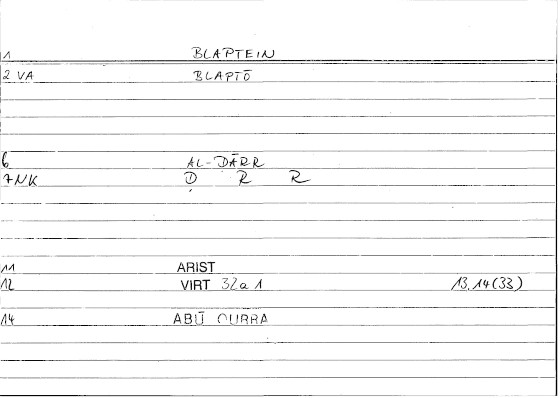 1 BLAPTEIN
2 VA BLAPTŌ
6 AL-DĀRR
7 NK Ḍ R R
11 ARIST
12 VIRT 32a 1 13.14(33)
14 ABŪ QURRA